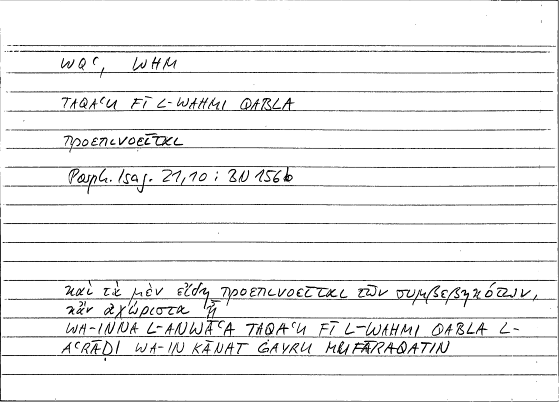 WQʿ, WHM
TAQAʿU FĪ L-WAHMI QABLA
προεπινοεῖται
Porph. Isag. 21,10 : BN 156b
καὶ τὰ μὲν εἴδη προεπινοεῖται τῶν συμβεβηκότων,
κἂν ἀχώριστα ᾖ
WA-INNA L-ANWĀʿA TAQAʿU FĪ L-WAHMI QABLA L-
AʿRĀḌI WA-IN KĀNAT ĠAYRU MUFĀRAQATIN